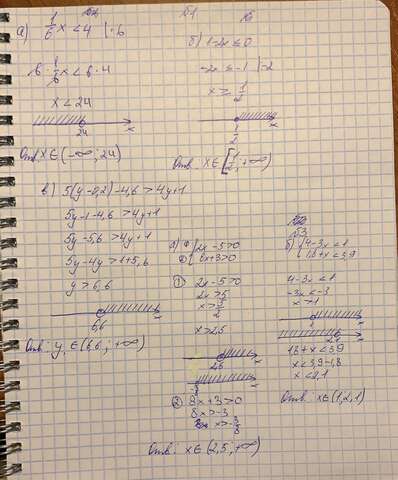 а) 1/6 x < 4 | · 6
6 · 1/6 x < 6 · 4
x < 24
24 x
Отв: x ∈ (-∞; 24)
№1
б) 1 - 2x ≤ 0
-2x ≤ -1 | -2
x ≥ 1/2
1/2 x
Отв: x ∈ [1/2; +∞)
в) 5(y-0,2)-4,6 > 4y+1
5y-1-4,6 > 4y+1
5y-5,6 > 4y+1
5y-4y > 1+5,6
y > 6,6
6,6 x
Отв: y ∈ (6,6; +∞)
2x-5>0
8x+3>0
① 2x-5>0
2x>5
x>5/2
x>2,5
2,5 x
② 8x+3>0
8x>-3
x>-3/8
Отв: x ∈ (2,5; +∞)
№3
б) 4-3x<1
1,8+x<3,9
4-3x<1
-3x<-3
x>1
1,8+x<3,9
x<3,9-1,8
x<2,1
Отв: x ∈ (1, 2,1)